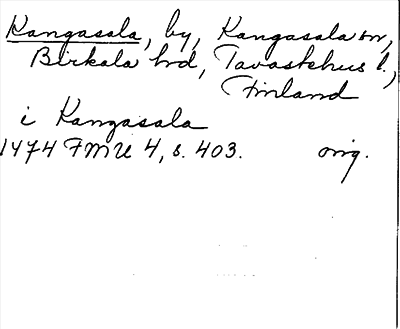 Kangasala, by, Kangasala sn,
Birkala hrd, Tavastehus l.,
Finland
i Kangasala
1474 FMU 4, s. 403. orig.